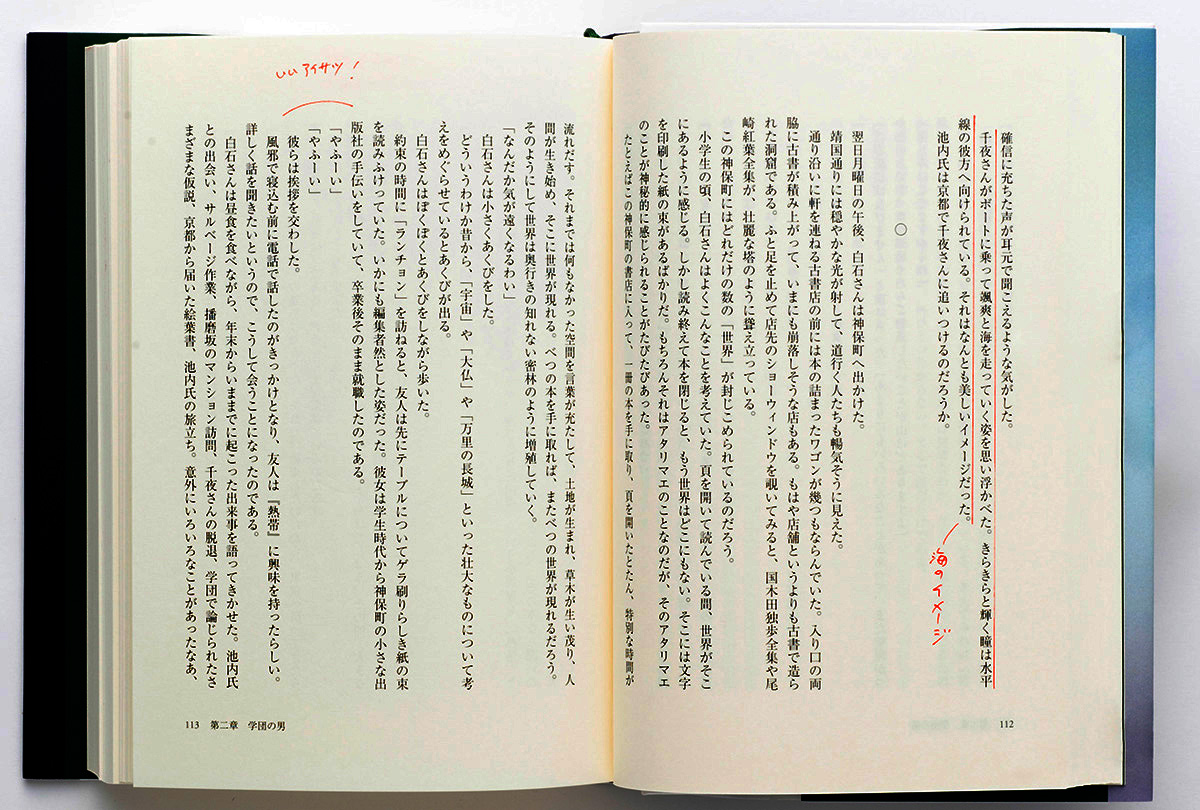 確信に充ちた声が耳元で聞こえるような気がした。
千夜さんがボートに乗って颯爽と海を走っていく姿を思い浮かべた。きらきらと輝く瞳は水平
線の彼方へ向けられている。それはなんとも美しいイメージだった。
海のイメージ
池内氏は京都で千夜さんに追いつけるのだろうか。
○
翌日月曜日の午後、白石さんは神保町へ出かけた。
靖国通りには穏やかな光が射して、道行く人たちも暢気そうに見えた。
通り沿いに軒を連ねる古書店の前には本の詰まったワゴンが幾つもならんでいた。入り口の両
脇に古書が積み上がって、いまにも崩落しそうな店もある。もはや店舗というよりも古書で造ら
れた洞窟である。ふと足を止めて店先のショーウィンドウを覗いてみると、国木田独歩全集や尾
崎紅葉全集が、壮麗な塔のように聳え立っている。
この神保町にはどれだけの数の「世界」が封じこめられているのだろう。
小学生の頃、白石さんはよくこんなことを考えていた。頁を開いて読んでいる間、世界がそこ
にあるように感じる。しかし読み終えて本を閉じると、もう世界はどこにもない。そこには文字
を印刷した紙の束があるばかりだ。もちろんそれはアタリマエのことなのだが、そのアタリマエ
のことが神秘的に感じられることがたびたびあった。
たとえばこの神保町の書店に入って、一冊の本を手に取り、頁を開いたとたん、特別な時間が
112
流れだす。それまでは何もなかった空間を言葉が充たして、土地が生まれ、草木が生い茂り、人
間が生き始め、そこに世界が現れる。べつの本を手に取れば、またべつの世界が現れるだろう。
そのようにして世界は奥行きの知れない密林のように増殖していく。
「なんだか気が遠くなるわい」
白石さんは小さくあくびをした。
どういうわけか昔から、「宇宙」や「大仏」や「万里の長城」といった壮大なものについて考
えをめぐらせているとあくびが出る。
白石さんはぽくぽくとあくびをしながら歩いた。
約束の時間に「ランチョン」を訪ねると、友人は先にテーブルについてゲラ刷りらしき紙の束
を読みふけっていた。いかにも編集者然とした姿だった。彼女は学生時代から神保町の小さな出
版社の手伝いをしていて、卒業後そのまま就職したのである。
いいアイサツ！
「やふーい」
「やふーい」
彼らは挨拶を交わした。
風邪で寝込む前に電話で話したのがきっかけとなり、友人は『熱帯』に興味を持ったらしい。
詳しく話を聞きたいというので、こうして会うことになったのである。
白石さんは昼食を食べながら、年末からいままでに起こった出来事を語ってきかせた。池内氏
との出会い、サルベージ作業、播磨坂のマンション訪問、千夜さんの脱退、学団で論じられたさ
まざまな仮説、京都から届いた絵葉書、池内氏の旅立ち。意外にいろいろなことがあったなあ、
113 第二章 学団の男